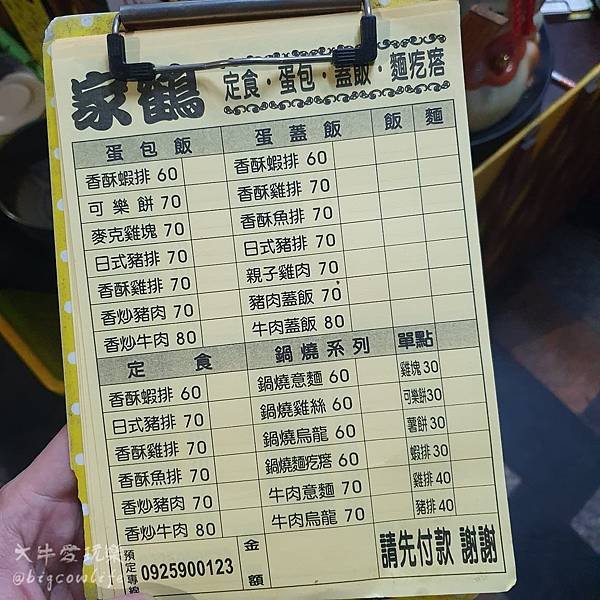 家鶴 定食·蛋包·蓋飯·麵疙瘩
蛋包飯
香酥蝦排 60
可樂餅 70
麥克雞塊 70
日式豬排 70
香酥雞排 70
香炒豬肉 70
香炒牛肉 80
蛋蓋飯 飯 麵
香酥蝦排 60
香酥雞排 70
香酥魚排 70
日式豬排 70
親子雞肉 70
豬肉蓋飯 70
牛肉蓋飯 80
定食
香酥蝦排 60
日式豬排 70
香酥雞排 70
香酥魚排 70
香炒豬肉 70
香炒牛肉 80
鍋燒系列
鍋燒意麵 60
鍋燒雞絲 60
鍋燒烏龍 60
鍋燒麵疙瘩 60
牛肉意麵 70
牛肉烏龍 70
單點
雞塊 30
可樂餅 30
薯餅 30
蝦排 30
雞排 40
豬排 40
預定專線 0925900123
金額
請先付款 謝謝
大牛愛玩樂
@bigcowlife